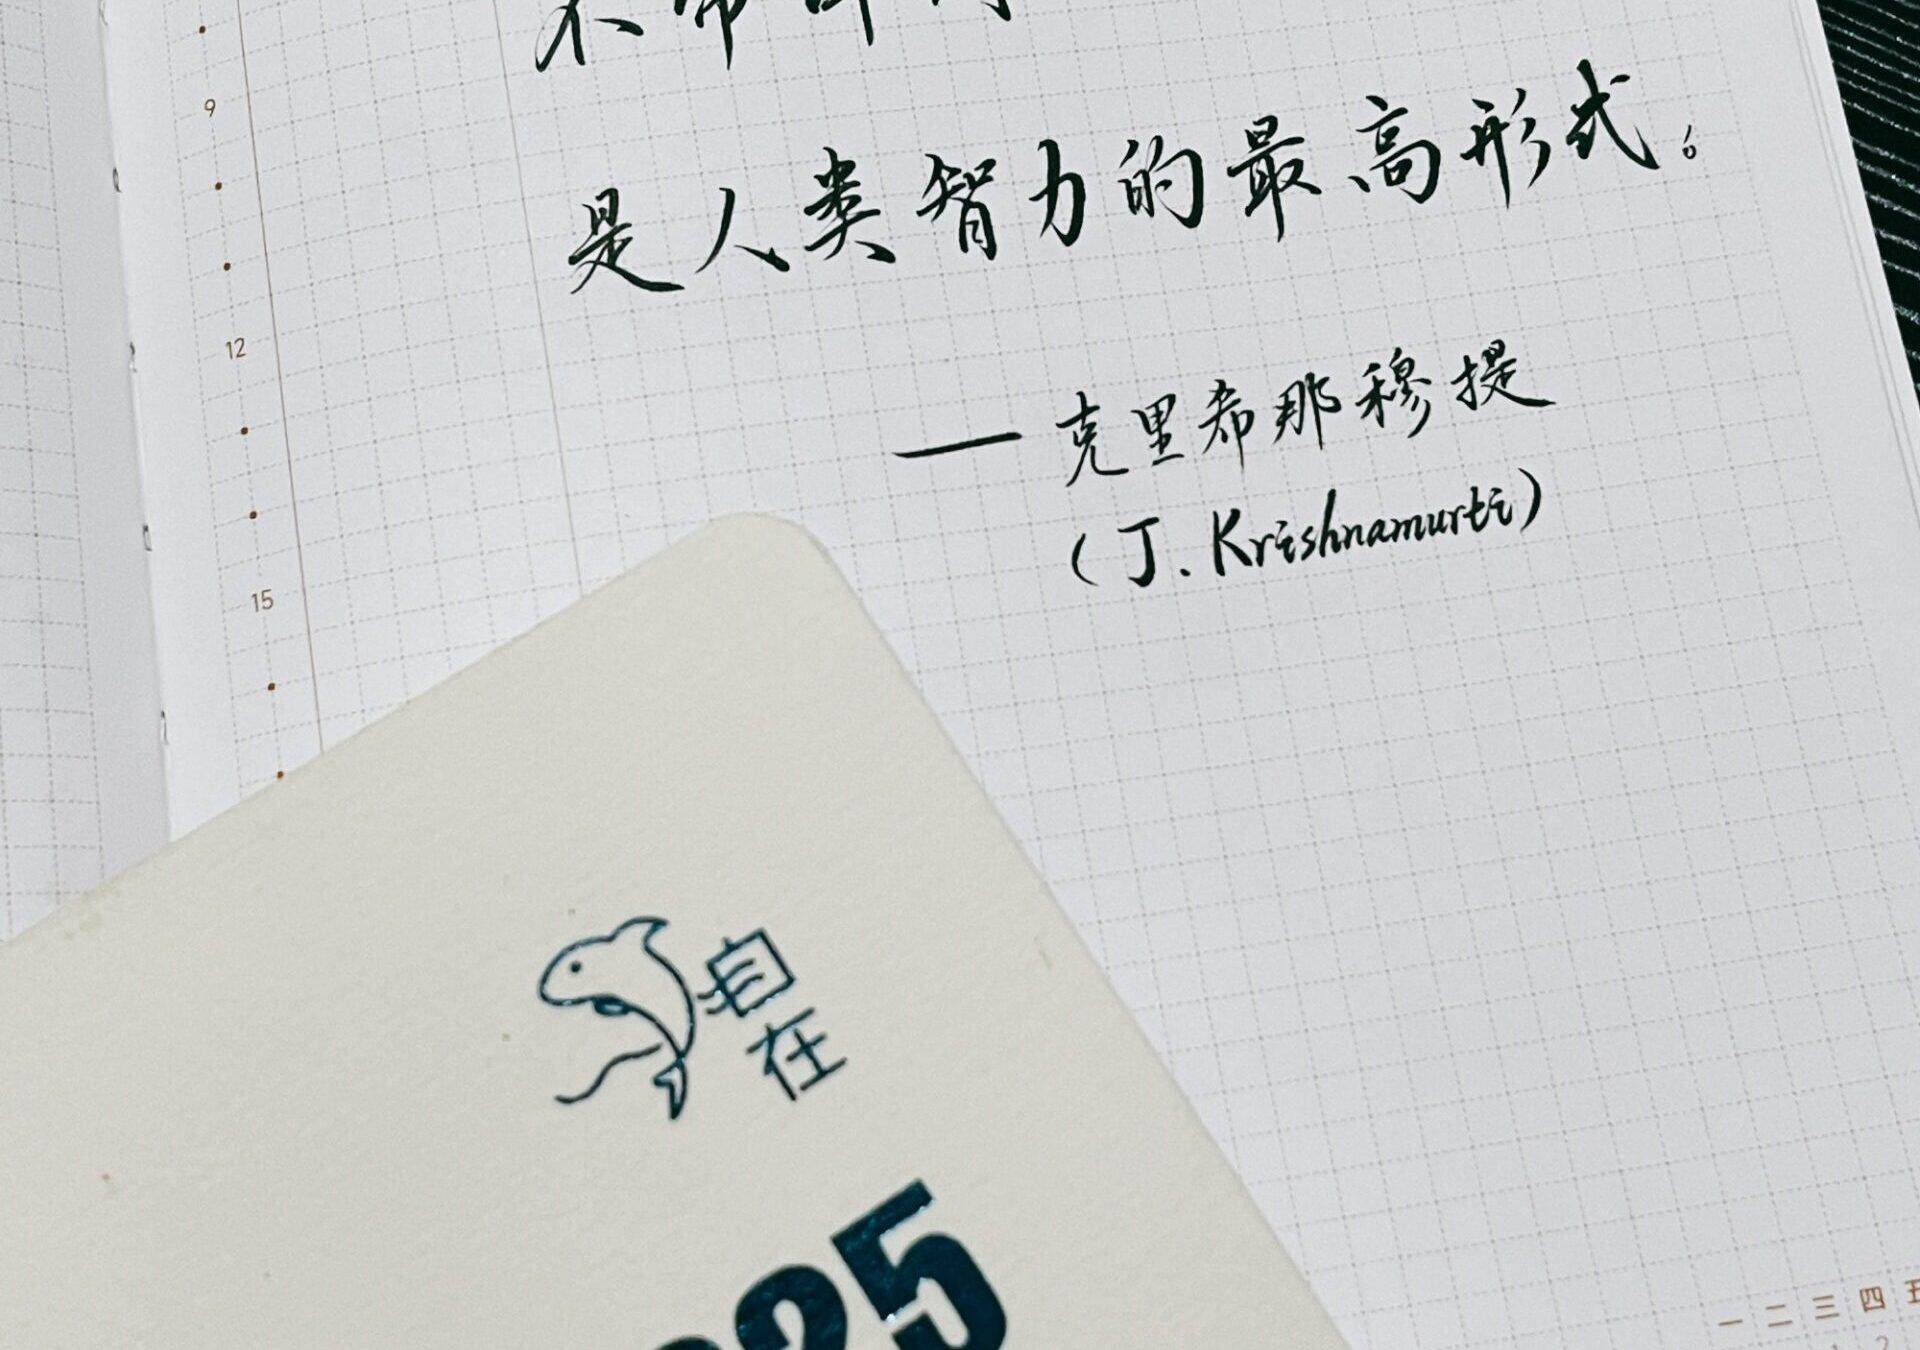 不带评判
是人类智力的最高形式。
— 克里希那穆提
(J. Krishnamurti)
9
12
15
自
在
25
一 二 三 四 五
1 2